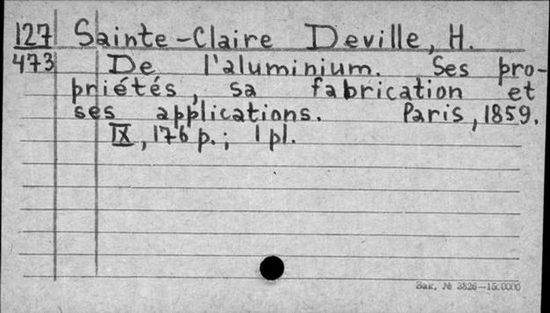 127 Sainte-Claire Deville, H.
473 De l'aluminium. Ses pro-
priétés, sa fabrication et
ses applications. Paris, 1859.
IX, 176 p.; 1 pl.
Зак. № 3826—15.0000